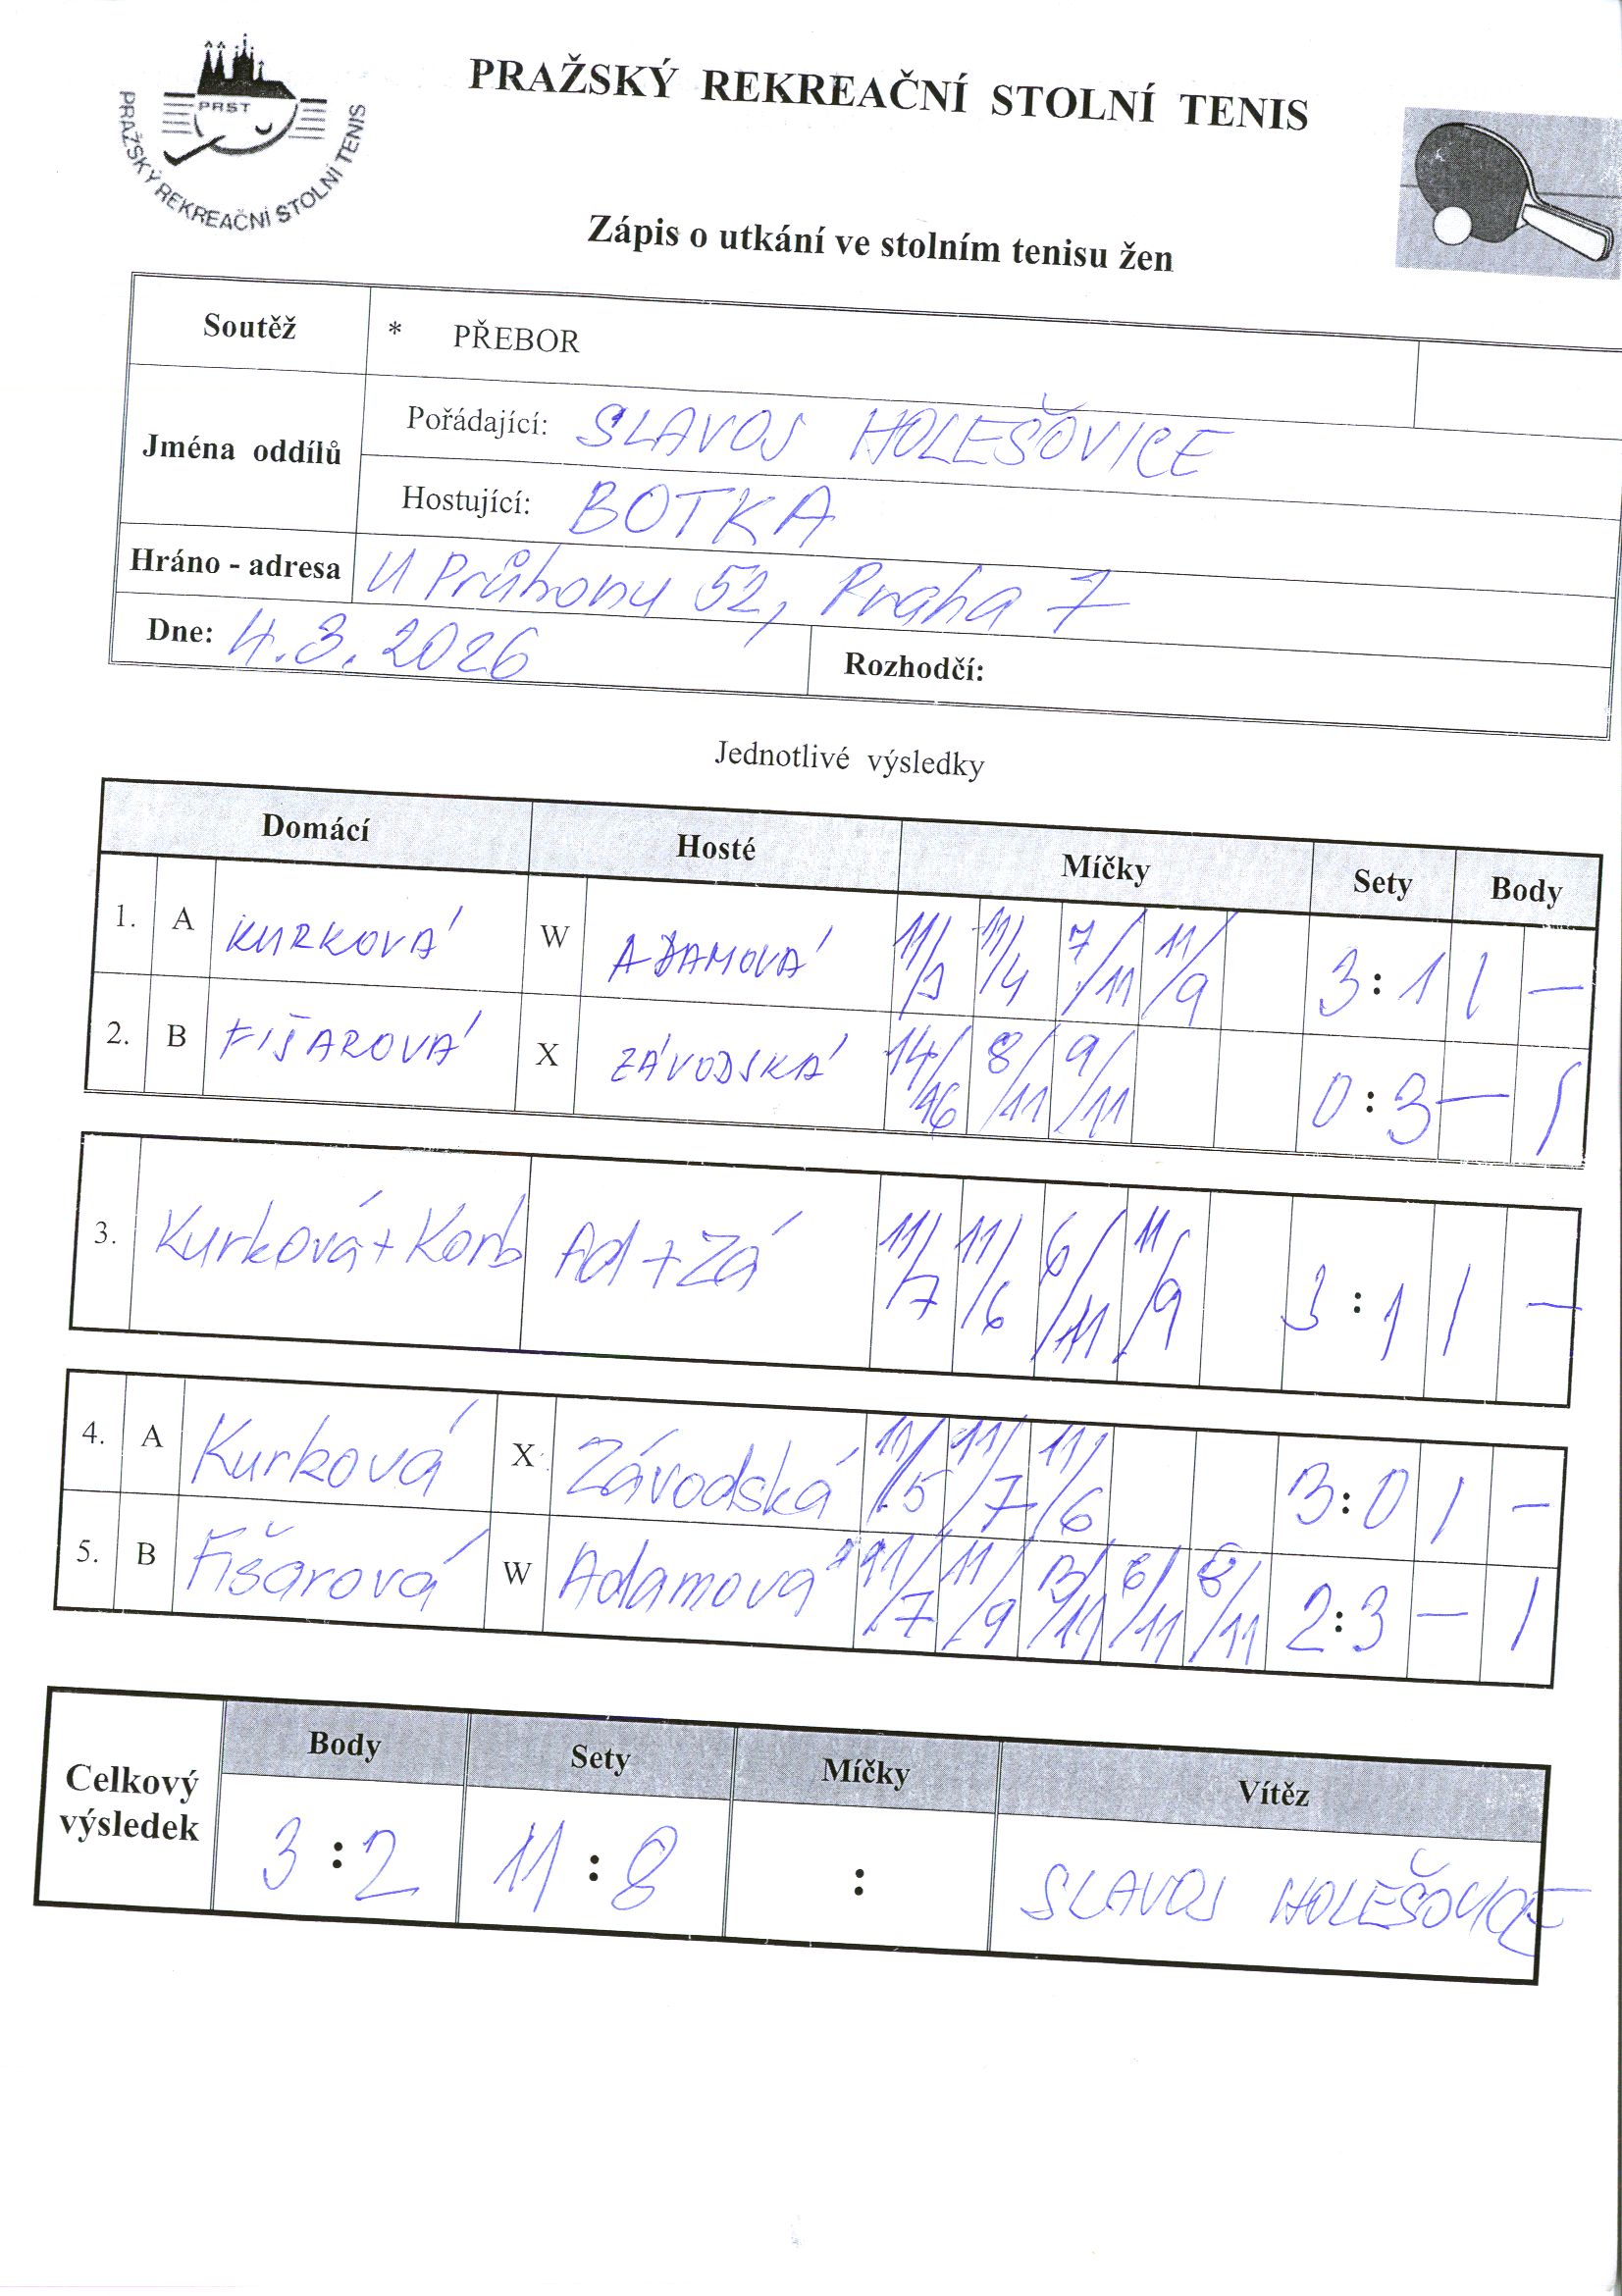 PRST
PRAŽSKÝ REKREAČNÍ STOLNÍ TENIS
PRAŽSKÝ REKREAČNÍ STOLNÍ TENIS
Zápis o utkání ve stolním tenisu žen
Soutěž * PŘEBOR
Jména oddílů
Pořádající: SLAVOJ HOLEŠOVICE
Hostující: BOTKA
Hráno - adresa U Průhonu 52, Praha 7
Dne: 4.3.2026 Rozhodčí:
Jednotlivé výsledky
Domácí Hosté Míčky Sety Body
1. A KURKOVÁ W ADAMOVÁ 11/ 11/4 7/11 11/9 3:1 1 —
2. B FIŠAROVÁ X ZÁVODSKÁ 14/16 8/11 9/11 0:3 — 1
3. Kurková+Korb Ad+Zá 11/7 11/6 6/11 11/9 3:1 1 —
4. A Kurková X Závodská 11/5 11/7 11/6 3:0 1 —
5. B Fišarová W Adamová 11/7 11/9 13/11 6/11 8/11 2:3 — 1
Celkový výsledek
Body Sety Míčky Vítěz
3:2 11:8 : SLAVOJ HOLEŠOVICE